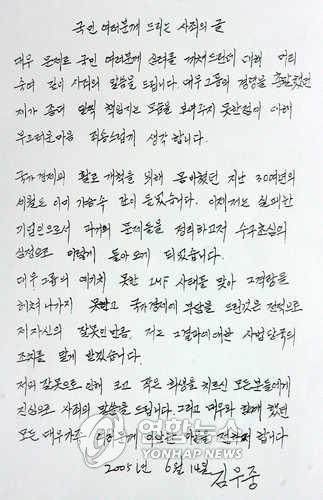 국민 여러분께 드리는 사죄의 글
대우 문제로 국민 여러분께 심려를 끼쳐드린데 대해 머리
숙여 깊이 사죄의 말씀을 드립니다. 대우그룹의 경영을 총괄했던
제가 좀더 일찍 책임지는 모습을 보여주지 못한점에 대해
부끄러운마음 죄송스럽게 생각 합니다.
국가경제의 활로 개척을 위해 몸아쳤던 지난 30여년의
세월도 이미 가슴속 깊이 묻었습니다. 이제저는 실패한
기업인으로서 과거의 문제들을 정리하고저 수구초심의
심정으로 이렇게 돌아오게 되었습니다.
대우그룹의 예기치 못한 IMF 사태를 맞아 그격랑을
헤쳐나가지 못하고 국가경제에 부담을 드린것은 전적으로
저자신의 잘못인만큼, 저는 그결과에대한 사법당국의
조치를 달게 받겠습니다.
저의잘못으로 인해 크고 작은 희생을 치르신 모든분들에게
진심으로 사죄의 말씀을 드립니다. 그리고 대우와 함께 했던
모든 대우가족 미안한 마음을 전하고자 합니다
2005년 6월 14일 김우중
연합뉴스
YONHAP NEWS